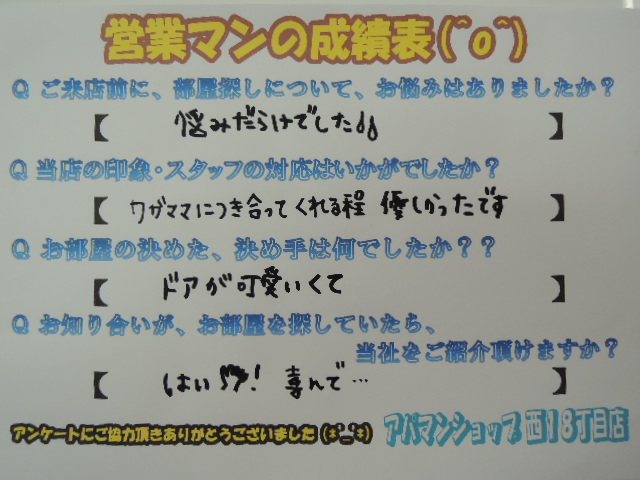 営業マンの成績表(^o^)
Q ご来店前に、部屋探しについて、お悩みはありましたか？
【 悩みだらけでした 】
Q 当店の印象・スタッフの対応はいかがでしたか？
【 ワガママにつき合ってくれる程 優しかったです 】
Q お部屋の決めた、決め手は何でしたか？？
【 ドアが可愛いくて 】
Q お知り合いが、お部屋を探していたら、
当社をご紹介頂けますか？
【 はい ! 喜んで… 】
アンケートにご協力頂きありがとうございました(*^_^*)
アパマンショップ 西18丁目店